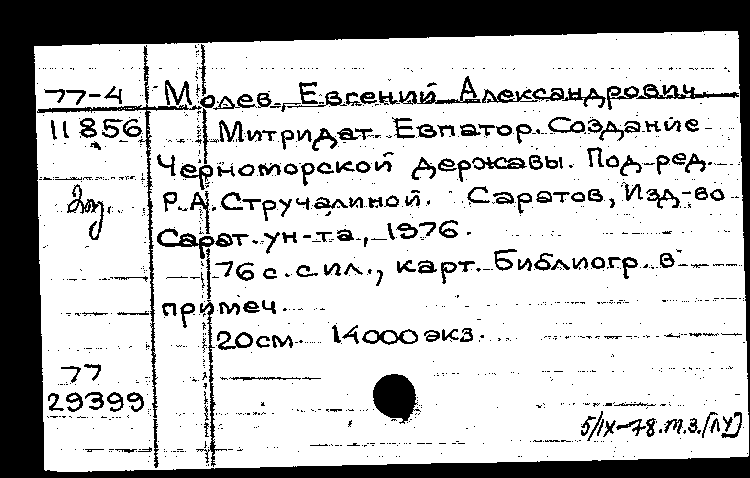 77-4 Молев, Евгений Александрович.
11856 Митридат Евпатор. Создание
Черноморской державы. Под ред.
Р.А.Стручалиной. Саратов, Изд-во
Сарат. ун-та, 1976.
76 с. с ил., карт. Библиогр. в
примеч.
20см. 14000 экз.
77
29399
5/IX-78.т.з.[ПУ]